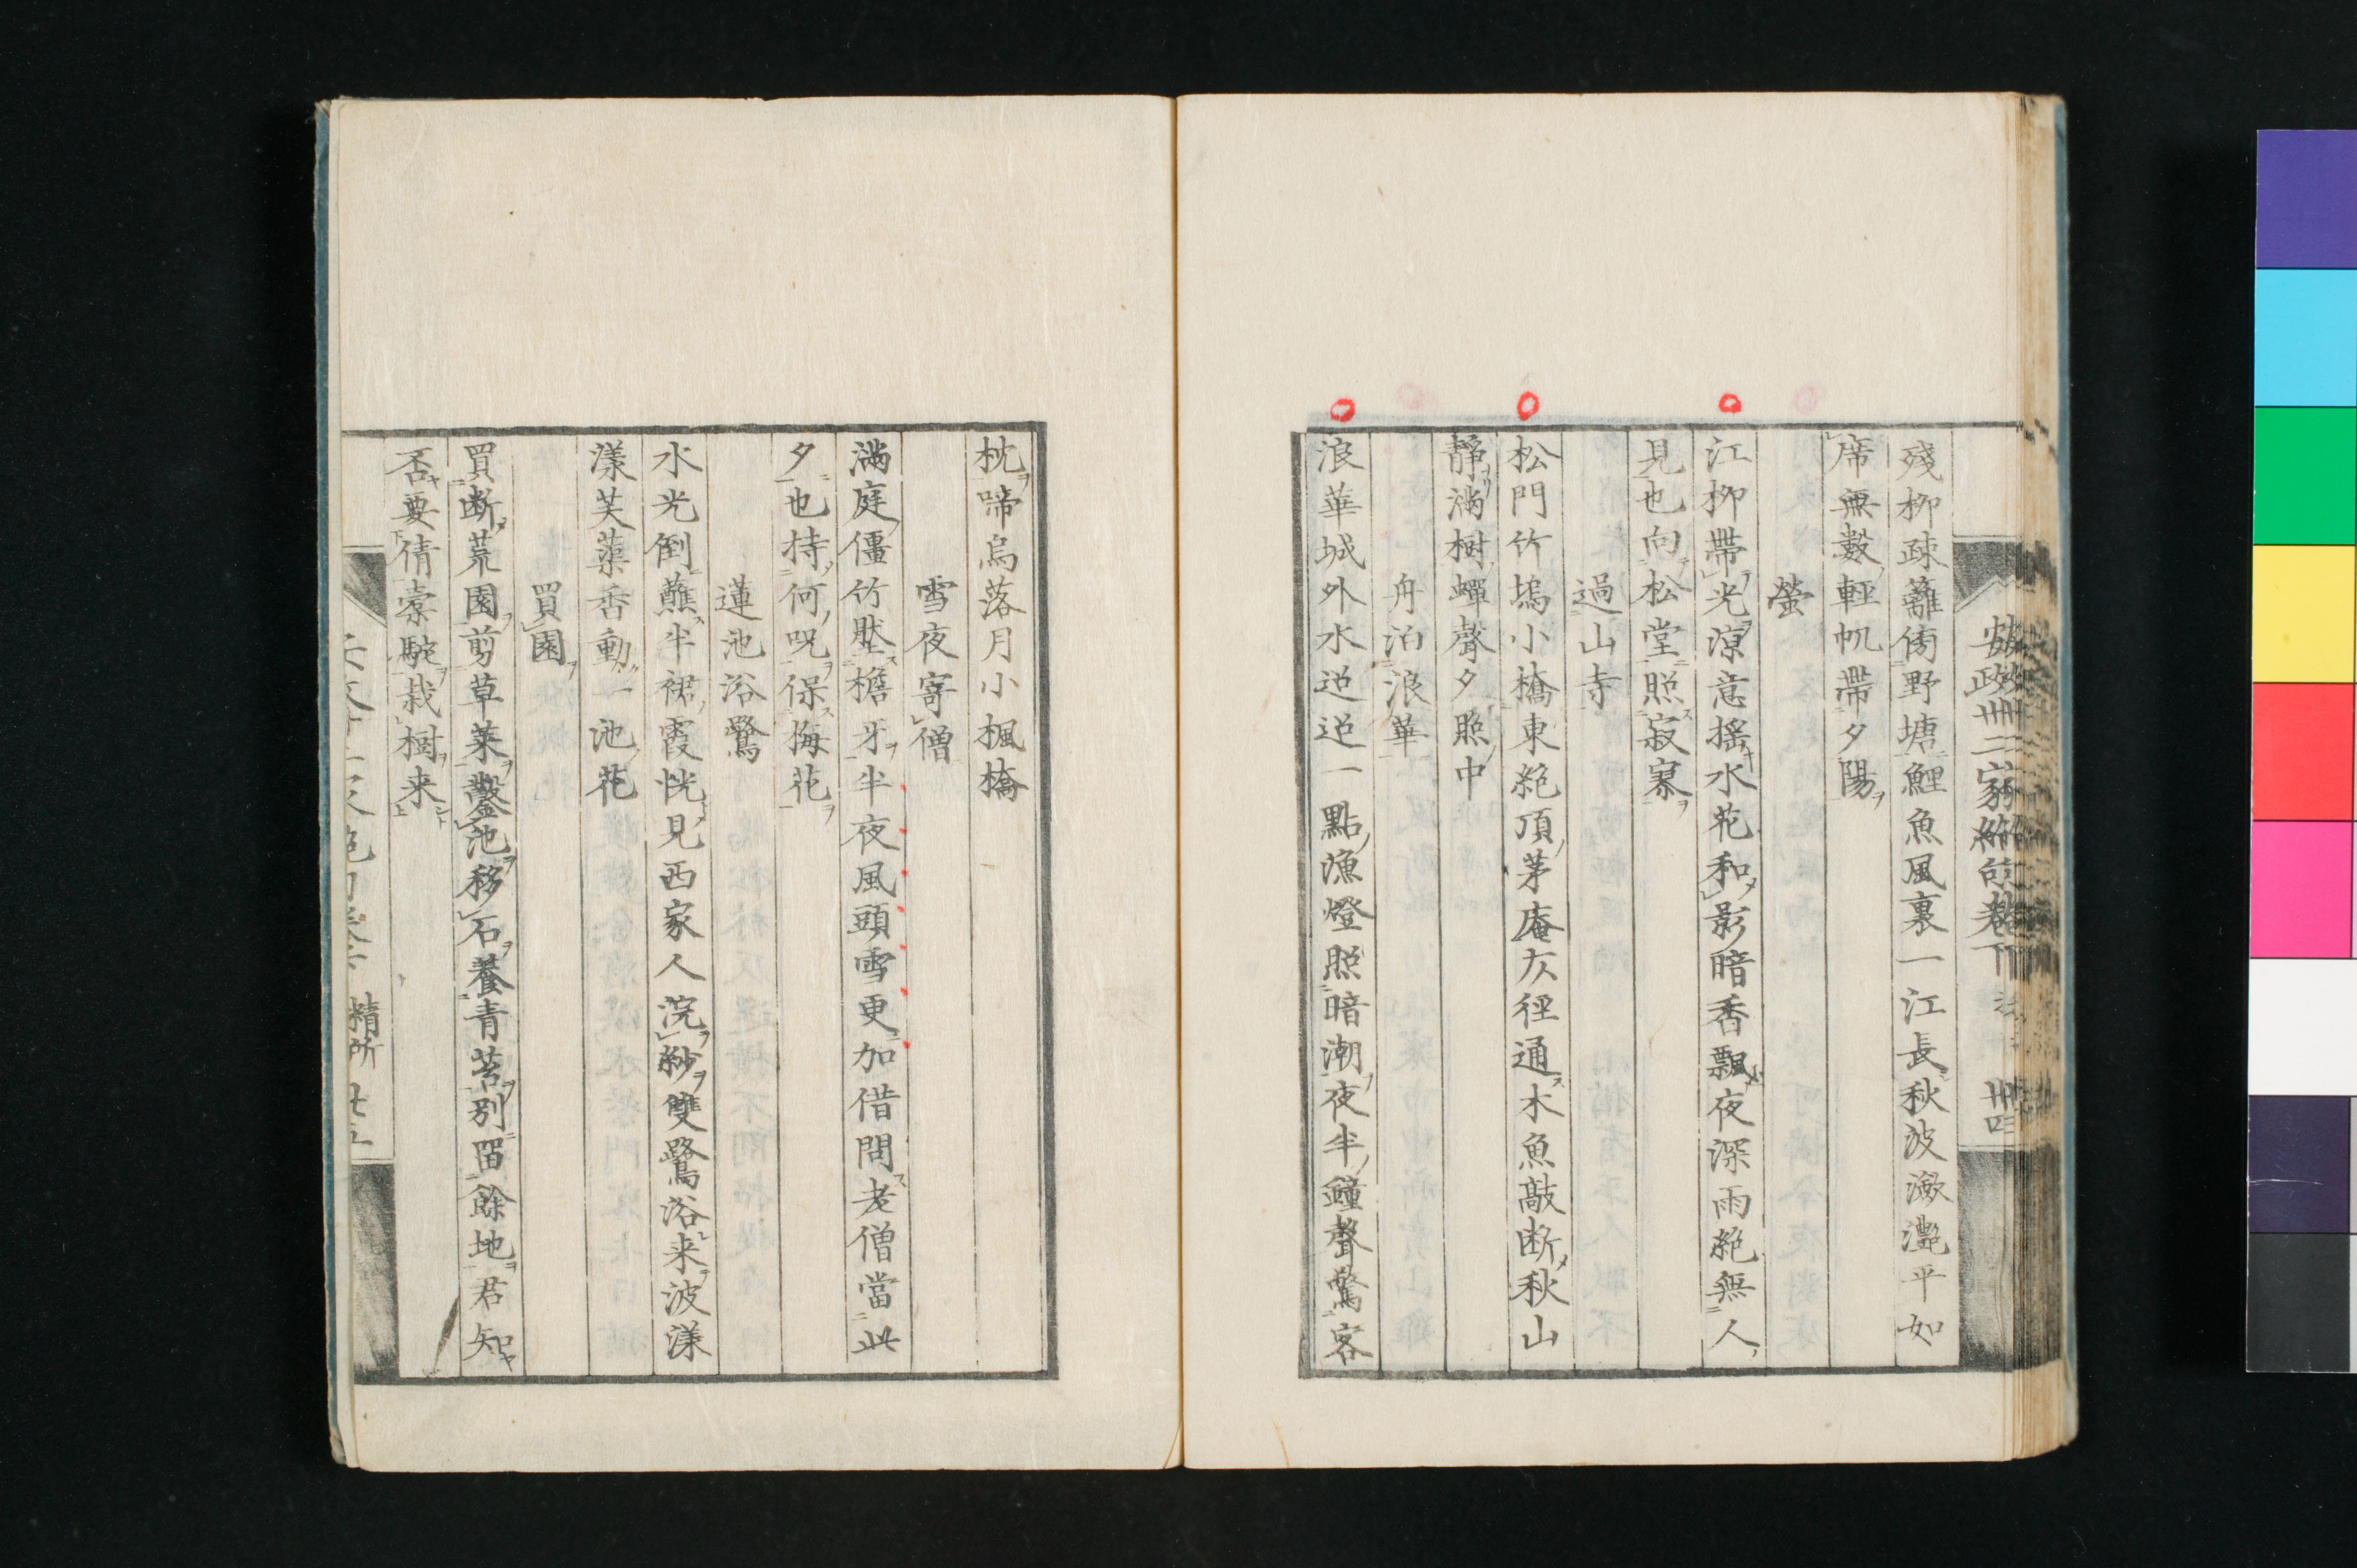 殘柳疎籬傍野塘鯉魚風裏一江長秋波瀲灔平如
席無數輕帆帶夕陽
螢
江柳帶光涼意搖水花和影暗香飄夜深雨絶無人
見也向松堂照寂寥
過山寺
松門竹塢小橋東絶頂茅庵仄徑通木魚敲断秋山
靜滿樹蟬聲夕照中
舟泊浪華
浪華城外水迢迢一點漁燈照暗潮夜半鐘聲驚客
枕啼烏落月小楓橋
雪夜寄僧
滿庭僵竹壓檐牙半夜風頭雪更加借問老僧當此
夕也持何呪保梅花
蓮池浴鷺
水光倒蘸半裙霞恍見西家人浣紗雙鷺浴来波漾
漾芙蕖香動一池花
買園
買断荒園剪草萊鑿池移石養青苔別留餘地君知
否要倩橐駝栽樹来